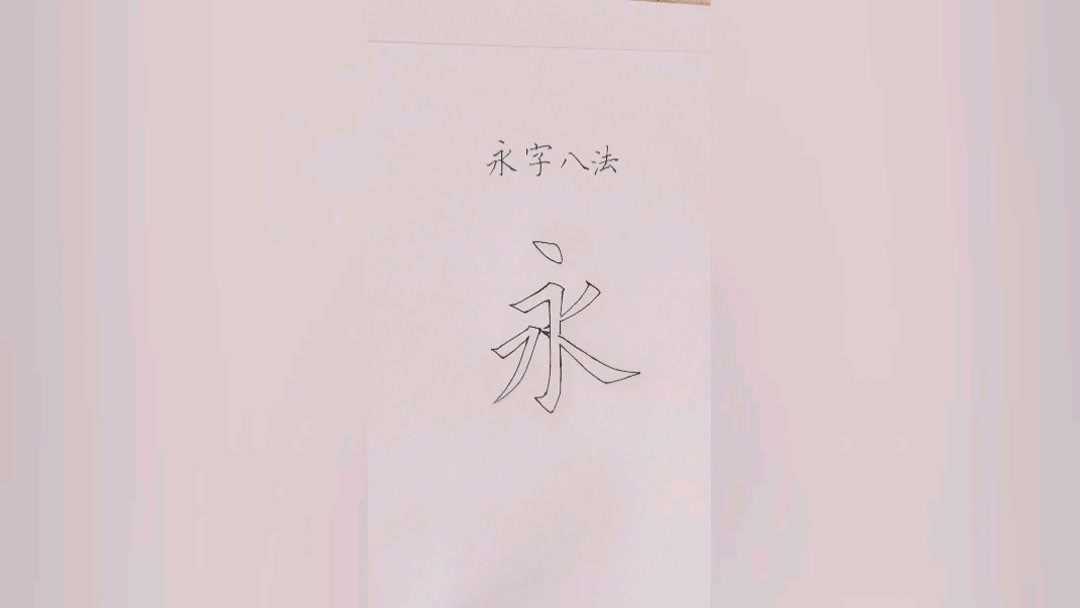 永字八法
永